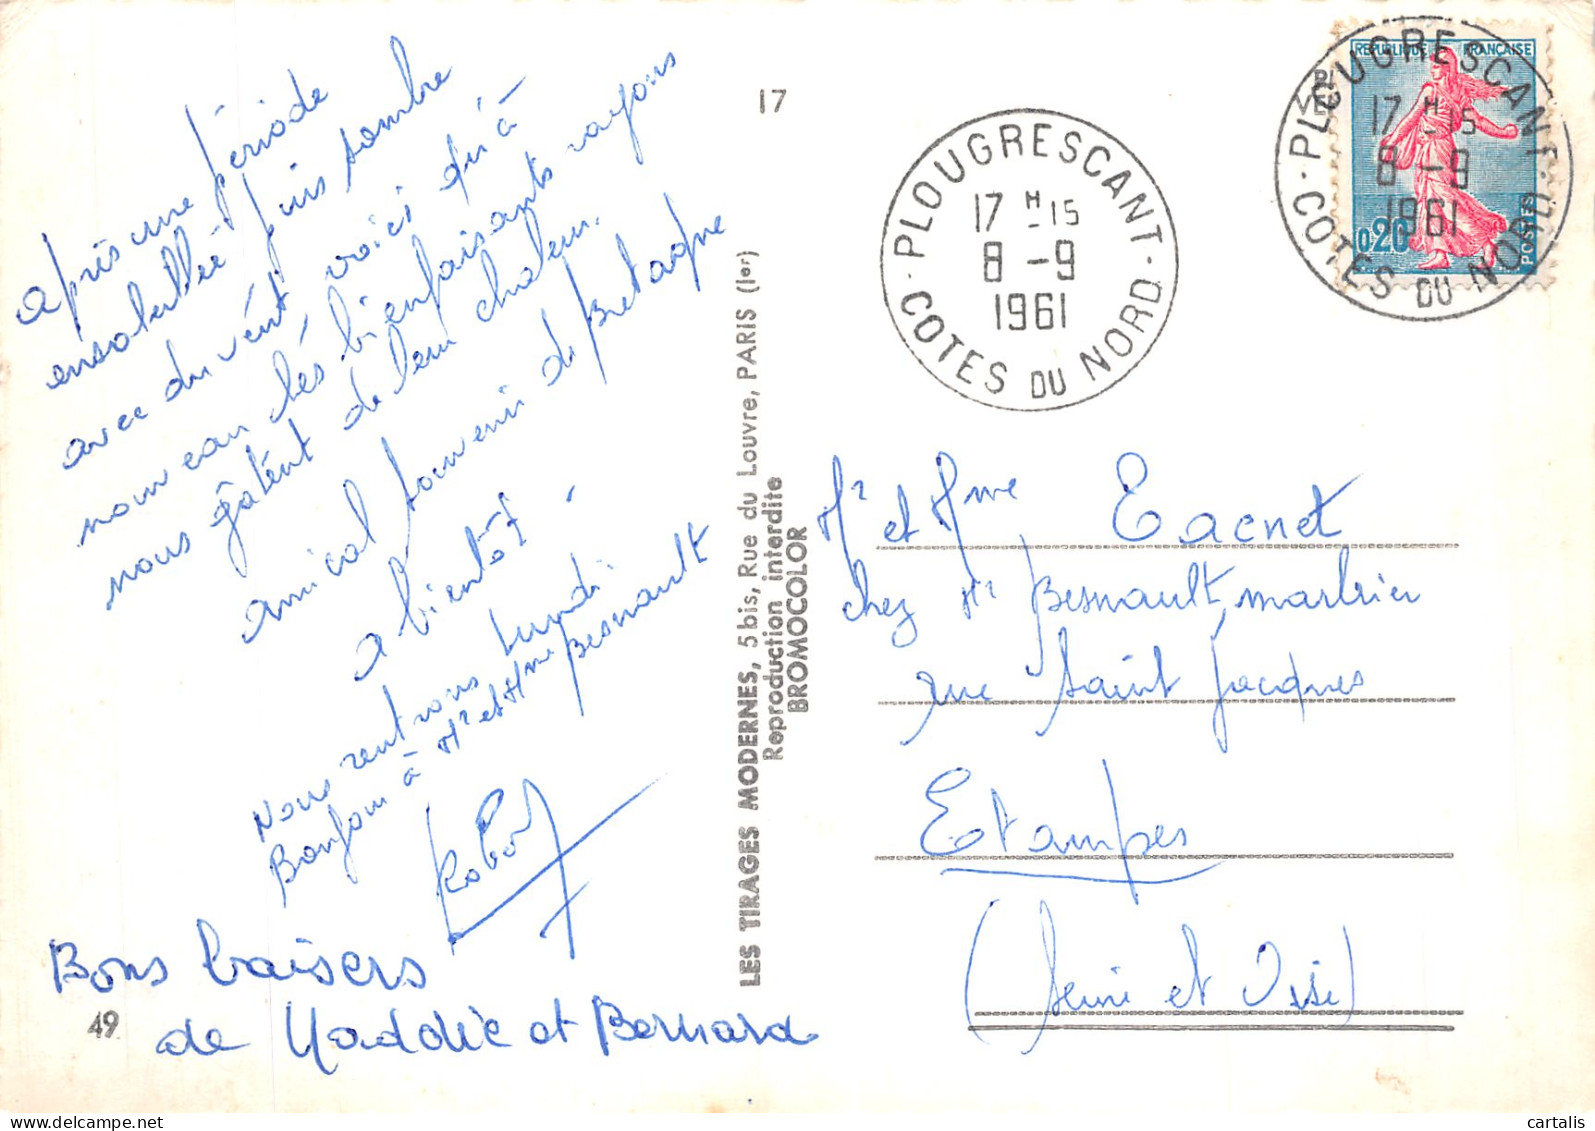 après une période
ensoleillée puis sombre
avec du vent, voici qu'à
nouveau les bienfaisants rayons
nous gâtent de leur chaleur.
amical souvenir de Bretagne
a bientôt
Nous rentrons lundi.
Bonjour à Mr et Mme Besnault
Robert
Bons baisers
de et Bernard
49
17
LES TIRAGES MODERNES, 5 bis, Rue du Louvre, PARIS (Ier)
Reproduction interdite
BROMOCOLOR
PLOUGRESCANT
17 H 15
8 - 9
1961
COTES DU NORD
REPUBLIQUE FRANÇAISE
0,20
POSTES
PLOUGRESCANT
17 H 15
8 - 9
1961
COTES DU NORD
Mr et Mme Cacnet
chez Mr Besnault, marbrier
rue Saint Jacques
Etampes
(Seine et Oise)
cartalis
www.delcampe.net